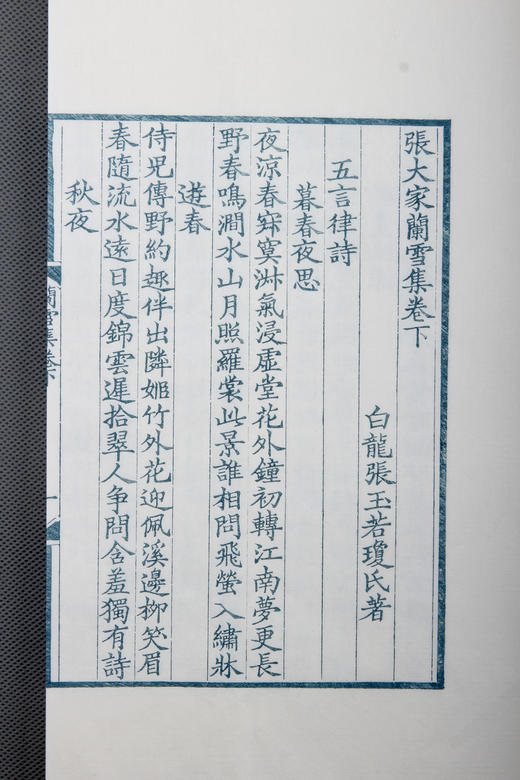 張大家蘭雪集卷下
白龍張玉若瓊氏著
五言律詩
暮春夜思
夜涼春寂寞淑氣浸虛堂花外鐘初轉江南夢更長
野春鳴澗水山月照羅裳此景誰相問飛螢入繡牀
遊春
侍兒傳野約趣伴出隣姬竹外花迎佩溪邊柳笑眉
春隨流水遠日度錦雲遲拾翠人争問含羞獨有詩
秋夜
蘭雪集卷下
一